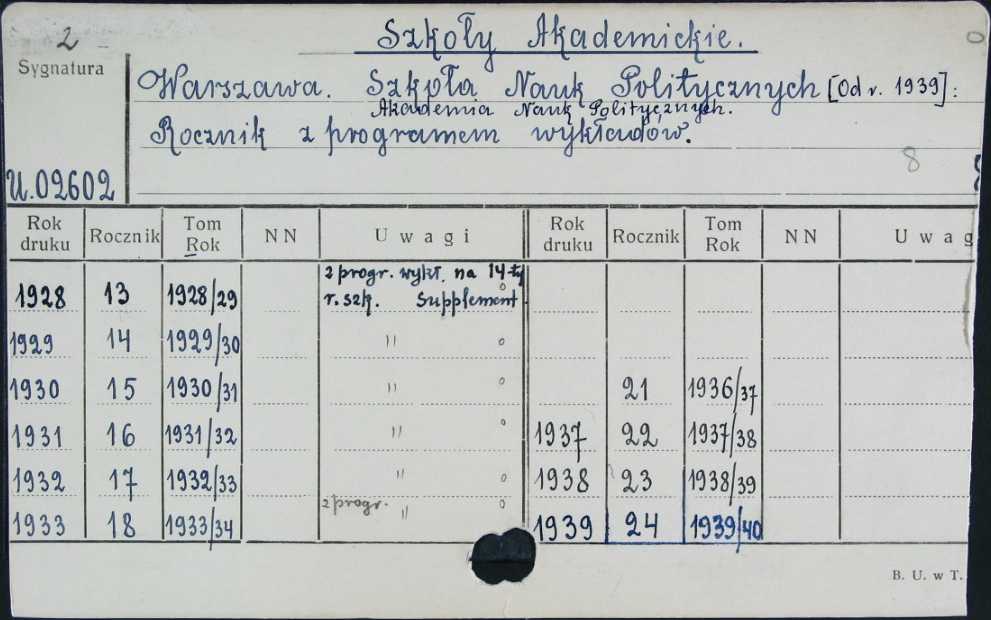 2
Szkoły Akademickie.
Sygnatura
Warszawa. Szkoła Nauk Politycznych [Od r. 1939]:
Akademia Nauk Politycznych.
Rocznik z programem wykładów.
8
U.02602
Rok druku Rocznik Tom Rok NN Uwagi Rok druku Rocznik Tom Rok NN Uwag
z progr. wykł. na 14-ty
1928 13 1928/29 r. szk. Supplement
1929 14 1929/30 "
1930 15 1930/31 " 21 1936/37
1931 16 1931/32 " 1937 22 1937/38
1932 17 1932/33 " 1938 23 1938/39
z progr.
1933 18 1933/34 " 1939 24 1939/40
B. U. w T.